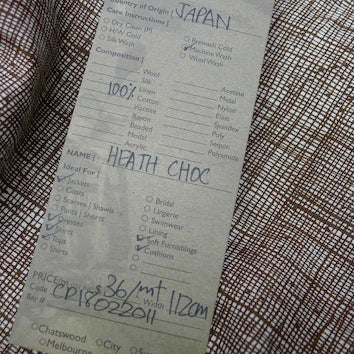 Country of Origin | JAPAN
Care Instructions |
Dry Clean (P)
Prewash Cold
H/W Cold
Machine Wash
Silk Wash
Wool Wash
Composition |
Wool
Acetate
Silk
Metal
Linen
Nylon
100% Cotton
Elast
Viscose
Spandex
Rayon
Poly
Beaded
Sequin
Metal
Polyamide
Acrylic
NAME | HEATH CHOC
Ideal For |
Jackets
Bridal
Coats
Lingerie
Scarves | Shawls
Swimwear
Pants | Shorts
Lining
Dresses
Soft Furnishings
Skirts
Cushions
Tops
Shirts
PRICE/m $36/mt Width 112cm
Code CD18022011
Bay #
Chatswood City
Melbourne